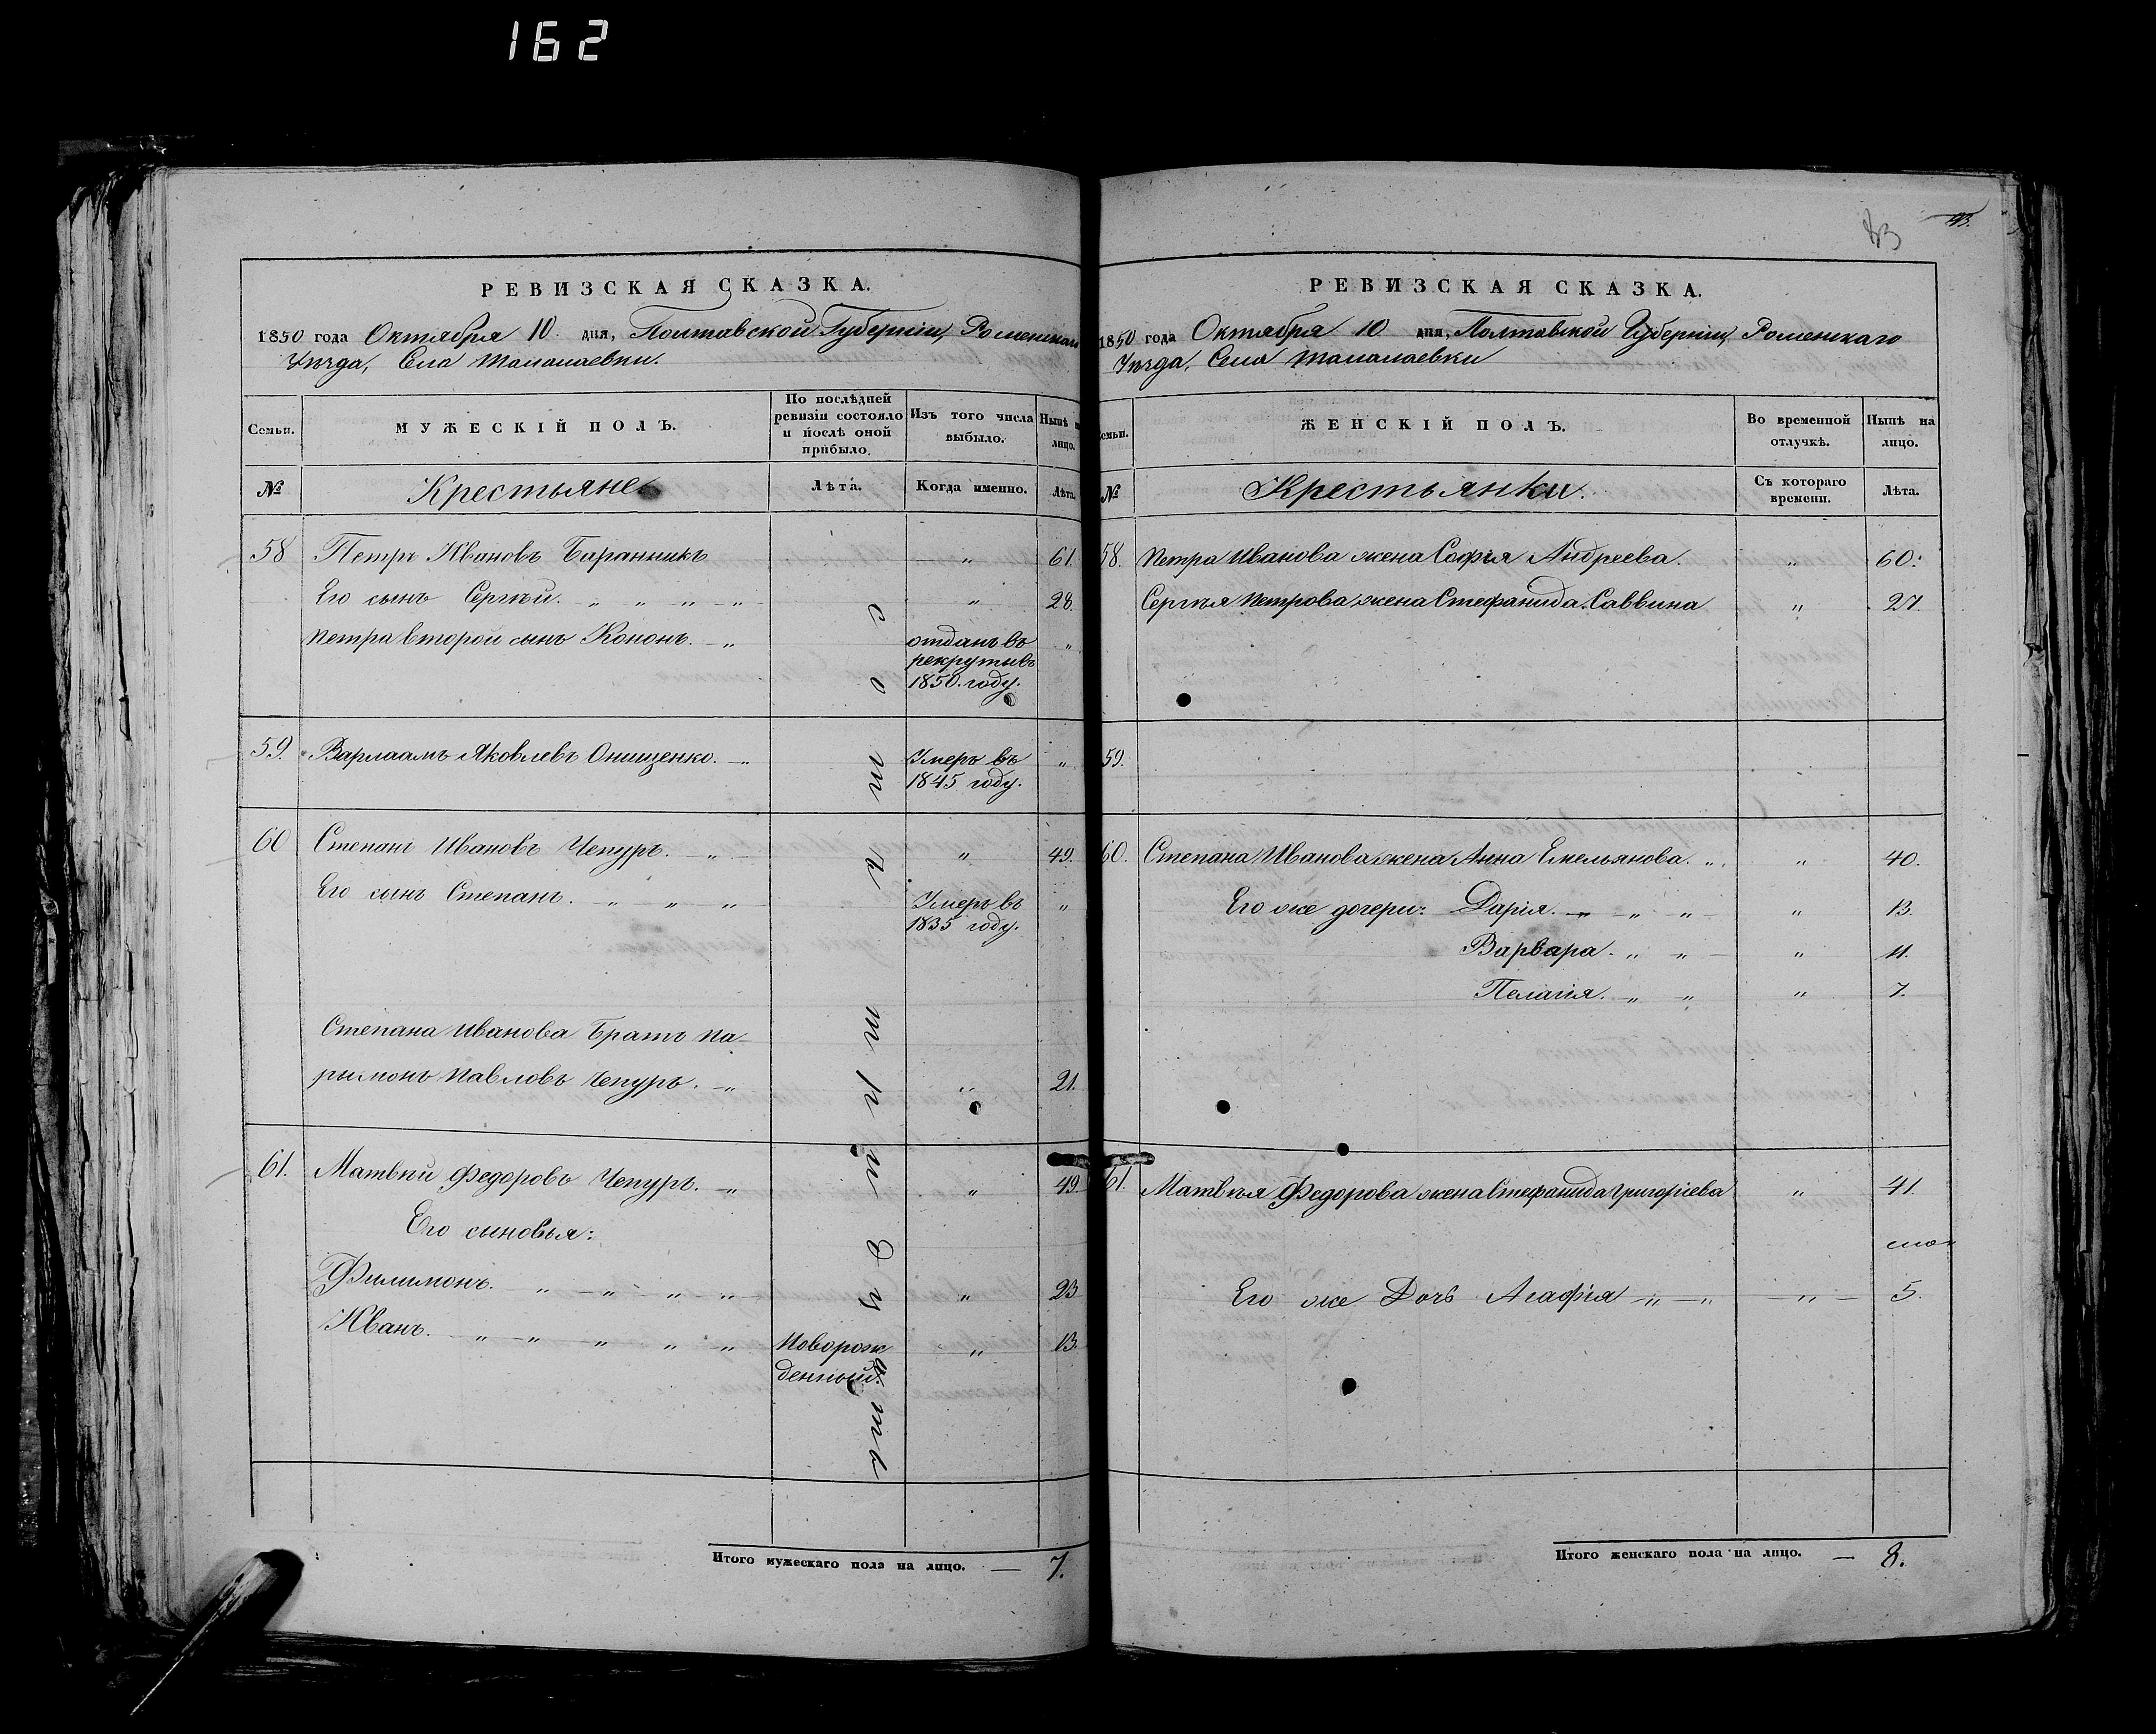 162
43.
РЕВИЗСКАЯ СКАЗКА.
1850 года Октября 10 дня, Полтавской Губерніи, Роменскаго
Уѣзда, Села Талалаевки.
Семьи.
МУЖЕСКІЙ ПОЛЪ.
По послѣдней ревизіи состояло и послѣ оной прибыло.
Изъ того числа выбыло.
Нынѣ на лицо.
№
Крестьяне
Лѣта.
Когда именно.
Лѣта.
58 Петръ Ивановъ Баранникъ " 61.
Его сынъ Сергѣй. " " " " " 28.
Петра второй сынъ Кононъ. " отданъ въ "
рекруты въ
1850. году.
59. Варлаамъ Яковлевъ Онищенко. " Умеръ въ "
1845 году.
60 Степанъ Ивановъ Чепуръ. " " 49.
Его сынъ Степанъ. " " " Умеръ въ "
1835 году.
Степана Иванова Братъ Па-
рымонъ Павловъ Чепуръ. " " 21.
61. Матвѣй Федоровъ Чепуръ. " " 49.
Его сыновья:
Филимонъ. " " " " " 23
Иванъ. " " " " " Новорож " 13.
денный.
Итого мужескаго пола на лицо. — 7.
РЕВИЗСКАЯ СКАЗКА.
1850 года Октября 10 дня, Полтавской Губерніи, Роменскаго
Уѣзда, Села Талалаевки
Семьи.
ЖЕНСКІЙ ПОЛЪ.
Во временной отлучкѣ.
Нынѣ на лицо.
№
Крестьянки.
Съ котораго времени.
Лѣта.
58. Петра Иванова жена Софія Андреева. " 60.
Сергѣя Петрова жена Стефанида Саввина " 27.
59.
60. Степана Иванова жена Анна Емельянова. " " 40.
Его же дочери: Дарія. " " " " 13.
Варвара. " " " 11.
Пелагія. " " " 7.
61. Матвѣя Федорова жена Стефанида Григоріева " 41.
Его же Дочь Агафія " " " 5.
Итого женскаго пола на лицо. — 8.